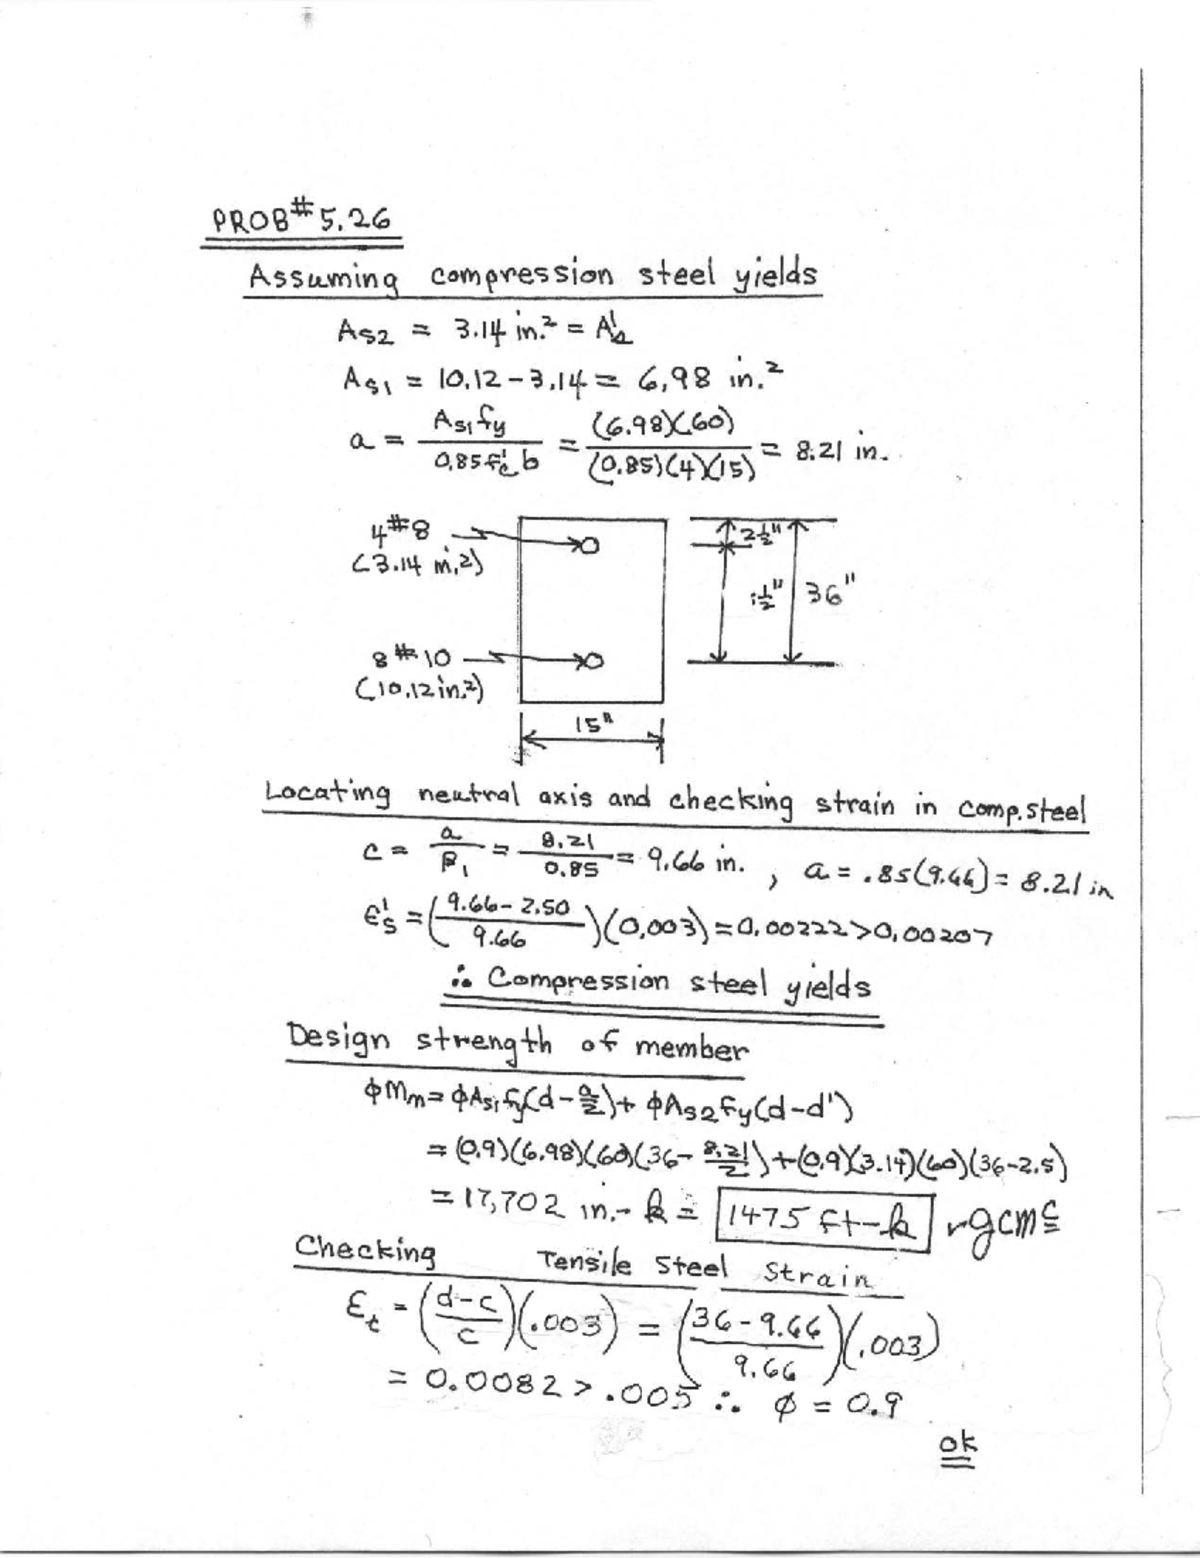 PROB# 5.26
Assuming compression steel yields
As2 = 3.14 in.² = A's
As1 = 10.12 - 3.14 = 6.98 in.²
a = As1 fy / 0.85 f'c b = (6.98)(60) / (0.85)(4)(15) = 8.21 in.
4#8
(3.14 in.²)
8#10
(10.12 in.²)
2½"
36"
15"
Locating neutral axis and checking strain in comp. steel
c = a / β1 = 8.21 / 0.85 = 9.66 in. , a = .85(9.66) = 8.21 in
ε's = (9.66 - 2.50 / 9.66)(0.003) = 0.00222 > 0.00207
∴ Compression steel yields
Design strength of member
φMn = φAs1 fy(d - a/2) + φAs2 fy(d - d')
= (0.9)(6.98)(60)(36 - 8.21/2) + (0.9)(3.14)(60)(36 - 2.5)
= 17,702 in.-k = 1475 ft-k
Checking Tensile Steel Strain
εt = (d - c / c)(.003) = (36 - 9.66 / 9.66)(.003)
= 0.0082 > .005 ∴ φ = 0.9
ok